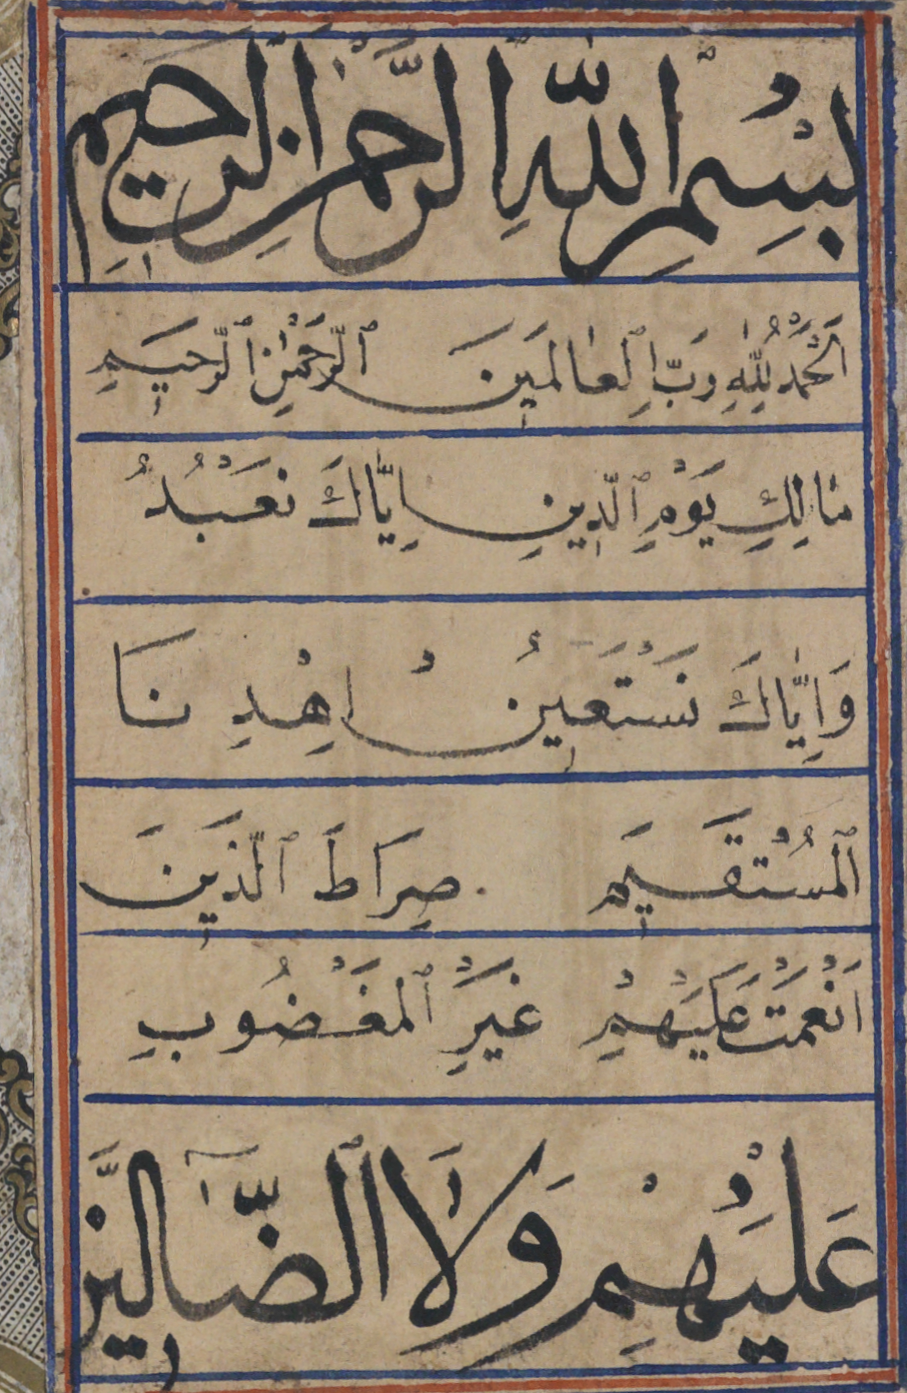 بِسْمِ اللّٰهِ الرَّحْمٰنِ الرَّحِيمِ
اَلْحَمْدُ لِلّٰهِ رَبِّ الْعَالَمِينَ الرَّحْمٰنِ الرَّحِيمِ
مَالِكِ يَوْمِ الدِّينِ اِيَّاكَ نَعْبُدُ
وَاِيَّاكَ نَسْتَعِينُ اِهْدِنَا
الْمُسْتَقِيمَ صِرَاطَ الَّذِينَ
اَنْعَمْتَ عَلَيْهِمْ غَيْرِ الْمَغْضُوبِ
عَلَيْهِمْ وَلَا الضَّالِّينَ